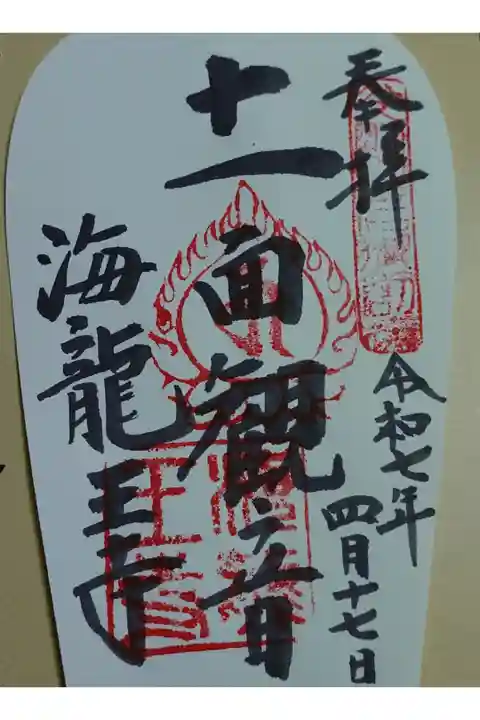 奉拝
令和七年
四月十七日
十一面観音
海龍王寺